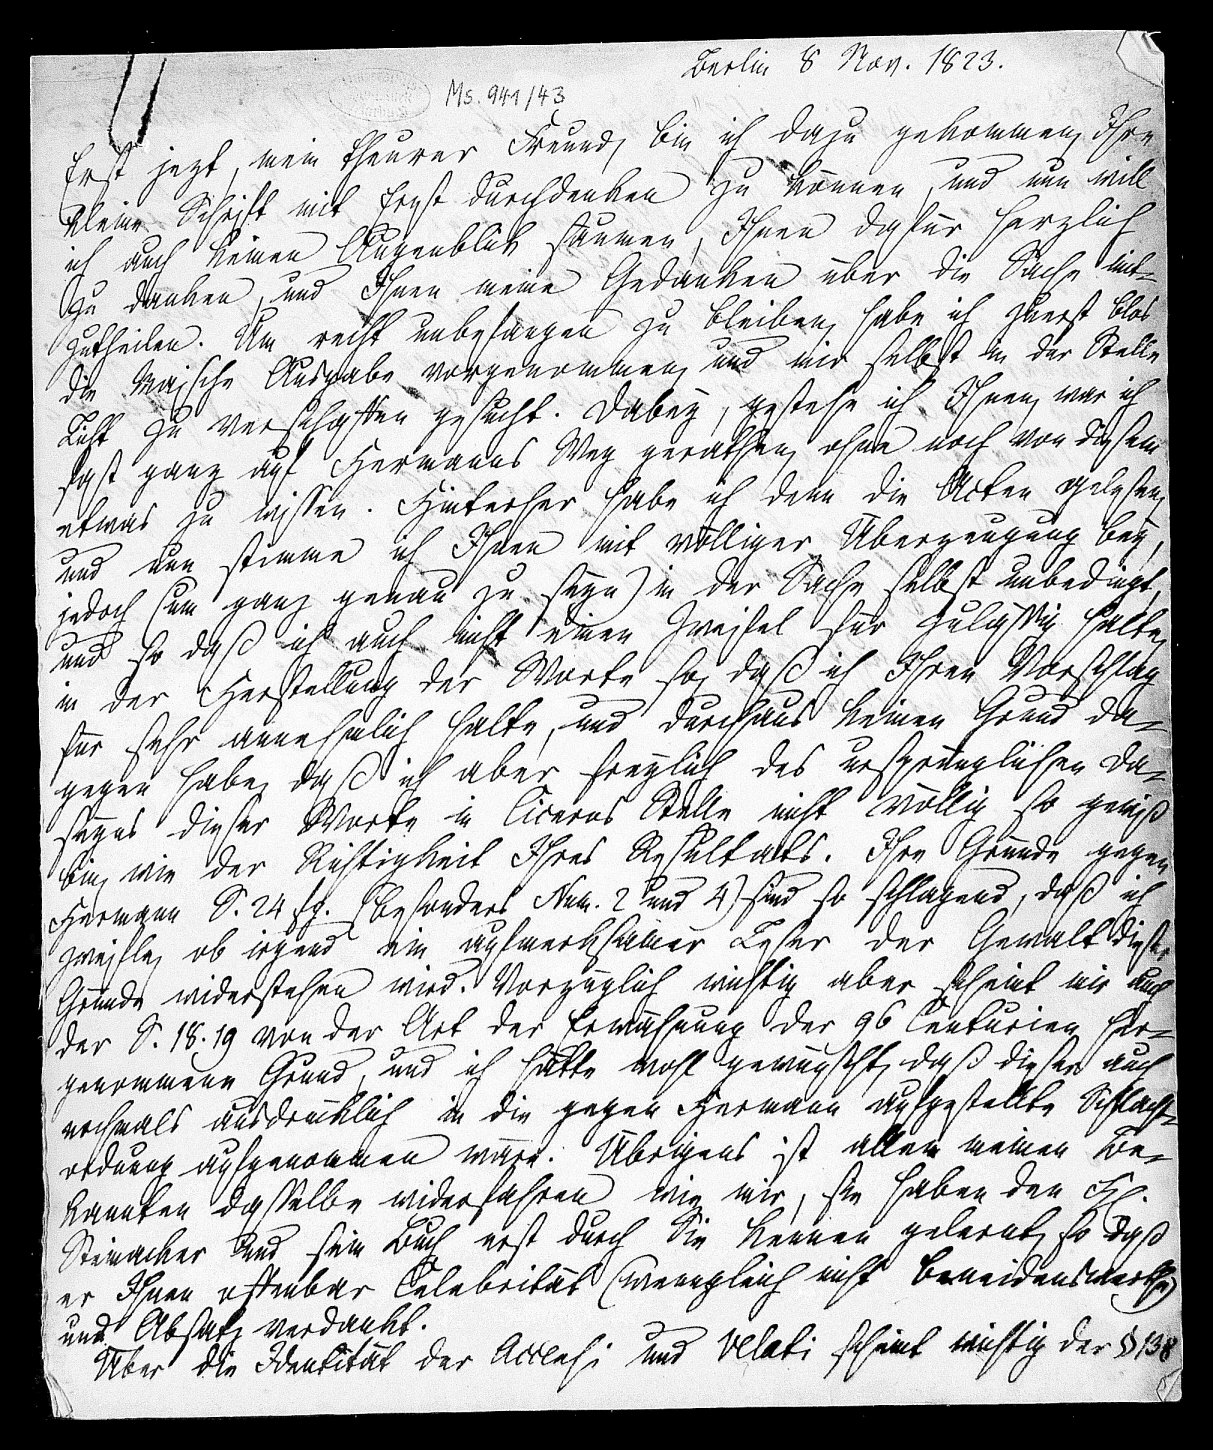 Berlin 8 Nov. 1823.
Ms. 941/43
Erst jezt, mein theurer Freund, bin ich dazu gekommen, Ihre
kleine Schrift mit Ernst durchdenken zu können, und nun will
ich auch keinen Augenblik säumen, Ihnen dafür herzlich
zu danken, und Ihnen meine Gedanken über die Sache mit-
zutheilen. Um recht unbefangen zu bleiben, habe ich zuerst blos
die Maische Ausgabe vorgenommen, und mir selbst in der Stelle
Licht zu verschaffen gesucht. Dabey, gestehe ich Ihnen, war ich
fast ganz auf Hermanns Weg gerathen, ohne noch von diesem
etwas zu wissen. Hinterher habe ich denn die Acten gelesen,
und nun stimme ich Ihnen mit völliger Überzeugung bey,
jedoch (um ganz genau zu seyn) in der Sache selbst unbedingt,
und so daß ich auch nicht einen Zweifel für zulässig halte,
in der Herstellung der Worte so, daß ich Ihren Vorschlag
für sehr annehmlich halte, und durchaus keinen Grund da-
gegen habe, daß ich aber freylich des ursprünglichen Da-
seyns dieser Worte in Ciceros Stelle nicht völlig so gewiß
bin, wie der Richtigkeit Ihres Resultats. Ihre Gründe gegen
Hermann S. 24 fg. (besonders Num. 2 und 4) sind so schlagend, daß ich
zweifle, ob irgend ein aufmerksamer Leser der Gewalt dieser
Gründe widerstehen wird. Vorzüglich wichtig aber scheint mir auch
der S. 18. 19 von der Art der Erwähnung der 96 Centurien her-
genommene Grund, und ich hätte wohl gewünscht, daß dieser auch
nochmals ausdrücklich in die gegen Hermann aufgestellte Schlacht-
ordnung aufgenommen wäre. Übrigens ist allen meinen Be-
kannten dasselbe widerfahren wie mir, sie haben den H.
Steinacker und sein Buch erst durch Sie kennen gelernt, so daß
er Ihnen offenbar Celebrität (wenngleich nicht beneidenswerthe)
und Absatz verdankt.
Über die Identität der Accensi und Velati scheint wichtig der § 138